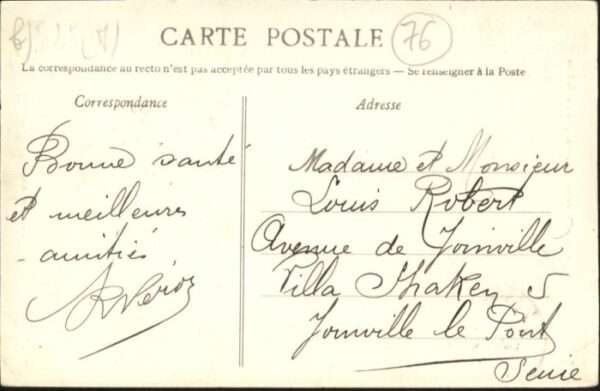 CARTE POSTALE
76
La correspondance au recto n'est pas acceptée par tous les pays étrangers — Se renseigner à la Poste
Correspondance
Bonne santé
et meilleures
amitiés
Adresse
Madame et Monsieur
Louis Robert
Avenue de Joinville
Villa
Joinville le Pont
Seine